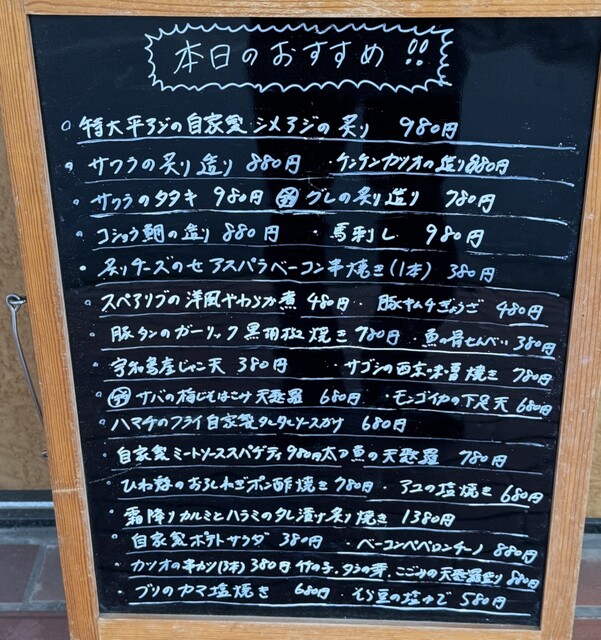 本日のおすすめ!!
特大平アジの自家製シメアジの炙り 980円
サワラの炙り造り 880円 ・ケンケンカツオの造り880円
サワラのタタキ 980円 グレの炙り造り 780円
コショウ鯛の造り 880円 ・馬刺し 980円
炙りチーズのせアスパラベーコン串焼き(1本) 380円
スペアリブの洋風やわらか煮 480円・豚キムチぎょうざ 480円
豚タンのガーリック黒胡椒焼き 780円・魚の骨せんべい 380円
宇和島産じゃこ天 380円 ・サゴシの西京味噌焼き 780円
サバの梅じそはさみ天麩羅 680円・モンゴイカの下足天 680円
ハマチのフライ自家製タルタルソースがけ 680円
自家製ミートソーススパゲティ 980円 太刀魚の天麩羅 780円
ひな鶏のおろしねぎポン酢焼き 780円・アユの塩焼き 680円
霜降りカルビとハラミのタレ漬け炙り焼き 1380円
自家製ポテトサラダ 380円 ・ベーコンペペロンチーノ 880円
カツオの串カツ(3本) 380円 竹の子・タラの芽・こごみの天麩羅盛り 880円
ブリのカマ塩焼き 680円 ・そら豆の塩ゆで 580円